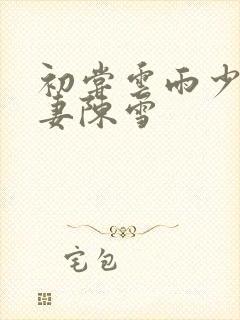 初尝云雨少
妻陈雪
宅包